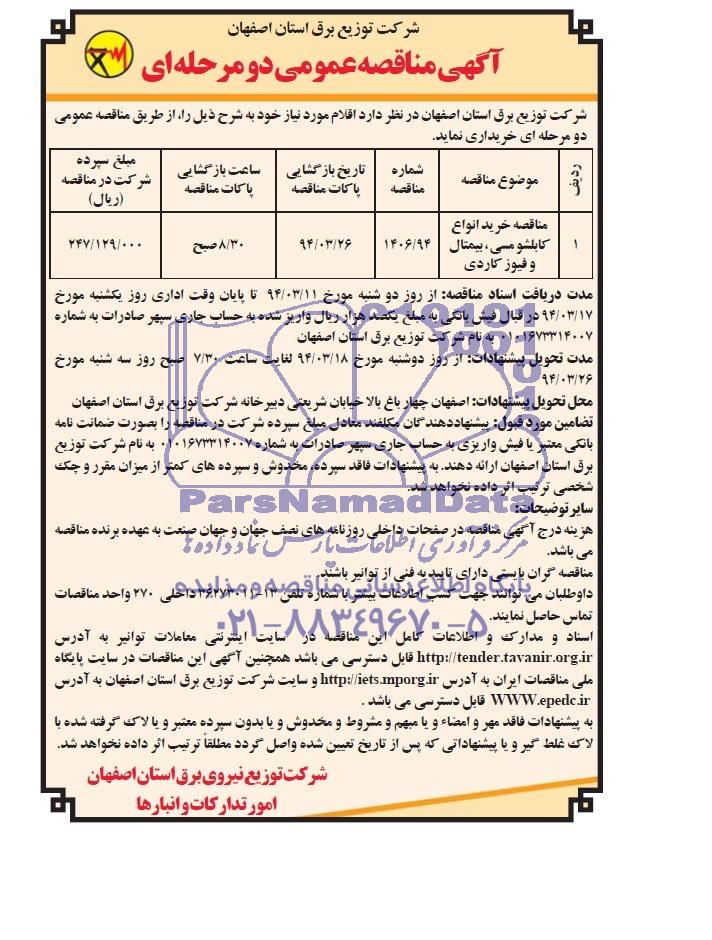 شرکت توزیع برق استان اصفهان
آگهی مناقصه عمومی دو مرحله ای
شرکت توزیع برق استان اصفهان در نظر دارد اقلام مورد نیاز خود به شرح ذیل را، از طریق مناقصه عمومی
دو مرحله ای خریداری نماید.
ردیف
موضوع مناقصه
شماره مناقصه
تاریخ بازگشایی پاکات مناقصه
ساعت بازگشایی پاکات مناقصه
مبلغ سپرده شرکت در مناقصه (ریال)
۱
مناقصه خرید انواع کابلشو مسی، بیمتال و فیوز کاردی
۱۴۰۶/۹۴
۹۴/۰۳/۲۶
۸/۳۰ صبح
۲۴۷/۱۲۹/۰۰۰
مدت دریافت اسناد مناقصه: از روز دو شنبه مورخ ۹۴/۰۳/۱۱ تا پایان وقت اداری روز یکشنبه مورخ
۹۴/۰۳/۱۷ در قبال فیش بانکی به مبلغ یکصد هزار ریال واریز شده به حساب جاری سپهر صادرات به شماره
۰۱۰۱۶۷۳۳۱۴۰۰۷ به نام شرکت توزیع برق استان اصفهان
مدت تحویل پیشنهادات: از روز دوشنبه مورخ ۹۴/۰۳/۱۸ لغایت ساعت ۷/۳۰ صبح روز سه شنبه مورخ
۹۴/۰۳/۲۶
محل تحویل پیشنهادات: اصفهان چهار باغ بالا خیابان شریعتی دبیرخانه شرکت توزیع برق استان اصفهان
تضامین مورد قبول: پیشنهاددهندگان مکلفند معادل مبلغ سپرده شرکت در مناقصه را بصورت ضمانت نامه
بانکی معتبر یا فیش واریزی به حساب جاری سپهر صادرات به شماره ۰۱۰۱۶۷۳۳۱۴۰۰۷ به نام شرکت توزیع
برق استان اصفهان ارائه دهند. به پیشنهادات فاقد سپرده، مخدوش و سپرده های کمتر از میزان مقرر و چک
شخصی ترتیب اثر داده نخواهد شد.
ParsNamadData
سایر توضیحات:
هزینه درج آگهی مناقصه در صفحات داخلی روزنامه های نصف جهان و جهان صنعت به عهده برنده مناقصه
می باشد.
مرکز فرآوری اطلاعات پارس نماد داده ها
مناقصه گران بایستی دارای تاییدیه فنی از توانیر باشند.
پایگاه اطلاع رسانی مناقصه و مزایده
داوطلبان می توانند جهت کسب اطلاعات بیشتر با شماره تلفن ۱۳-۳۶۲۷۳۰۱۱ داخلی ۲۷۰ واحد مناقصات
تماس حاصل نمایند.
۰۲۱-۸۸۳۴۹۶۷۰-۵
اسناد و مدارک و اطلاعات کامل این مناقصه در سایت اینترنتی معاملات توانیر به آدرس
http://tender.tavanir.org.ir قابل دسترسی می باشد همچنین آگهی این مناقصات در سایت پایگاه
ملی مناقصات ایران به آدرس http://iets.mporg.ir و سایت شرکت توزیع برق استان اصفهان به آدرس
WWW.epedc.ir قابل دسترسی می باشد .
به پیشنهادات فاقد مهر و امضاء و یا مبهم و مشروط و مخدوش و یا بدون سپرده معتبر و یا لاک گرفته شده با
لاک غلط گیر و یا پیشنهاداتی که پس از تاریخ تعیین شده واصل گردد مطلقاً ترتیب اثر داده نخواهد شد.
شرکت توزیع نیروی برق استان اصفهان
امور تدارکات و انبارها